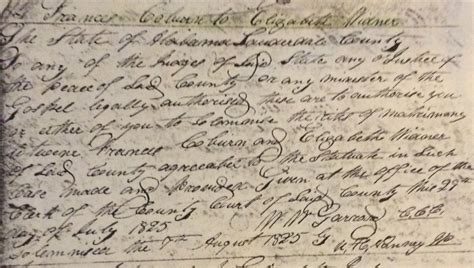 Francis Coburn to Elizabeth Widner
The State of Alabama Lauderdale County
To any of the Judges of Said State any o Justice of
the peace of Said County or any minister of the
Gospel legally authorised these are to authorise you
or either of you to solemnise the rites of matrimony
Between Francis Coburn and Elizabeth Widner
of Said County agreeable to the Statute in Such
Case made and provided Given at the office of the
Clerk of the County Court of Said County this 29th
day of July 1825 W. W. Garrard C.C.C.
Solemnised the 7th August 1825 by